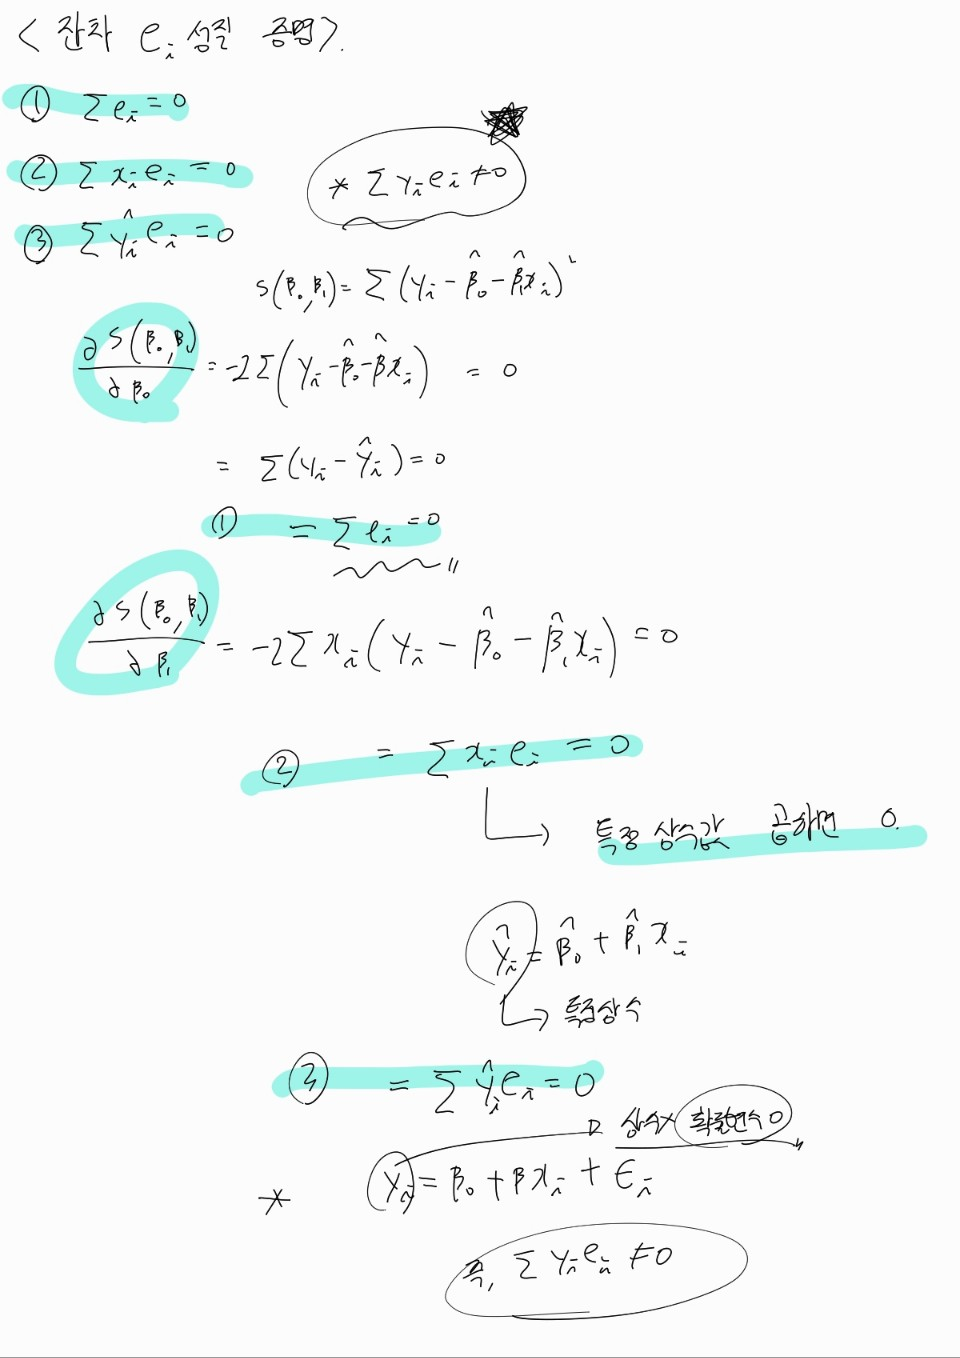 < 잔차 eᵢ 성질 증명>.
① Σ eᵢ = 0
② Σ xᵢ eᵢ = 0
* Σ yᵢ eᵢ ≠ 0
③ Σ ŷᵢ eᵢ = 0
S(β₀, β₁) = Σ (yᵢ - β̂₀ - β̂₁xᵢ)²
∂S(β₀, β₁)/∂β₀ = -2Σ(yᵢ - β̂₀ - β̂xᵢ) = 0
= Σ(yᵢ - ŷᵢ) = 0
① = Σ eᵢ = 0 〃
∂S(β₀, β₁)/∂β₁ = -2Σ xᵢ(yᵢ - β̂₀ - β̂₁xᵢ) = 0
② = Σ xᵢ eᵢ = 0
↳ 특정 상수값 곱하면 0.
ŷᵢ = β̂₀ + β̂₁xᵢ
↳ 특정상수
③ = Σ ŷᵢ eᵢ = 0
상수x 확률변수0
* yᵢ = β₀ + βxᵢ + εᵢ
즉, Σ yᵢ eᵢ ≠ 0